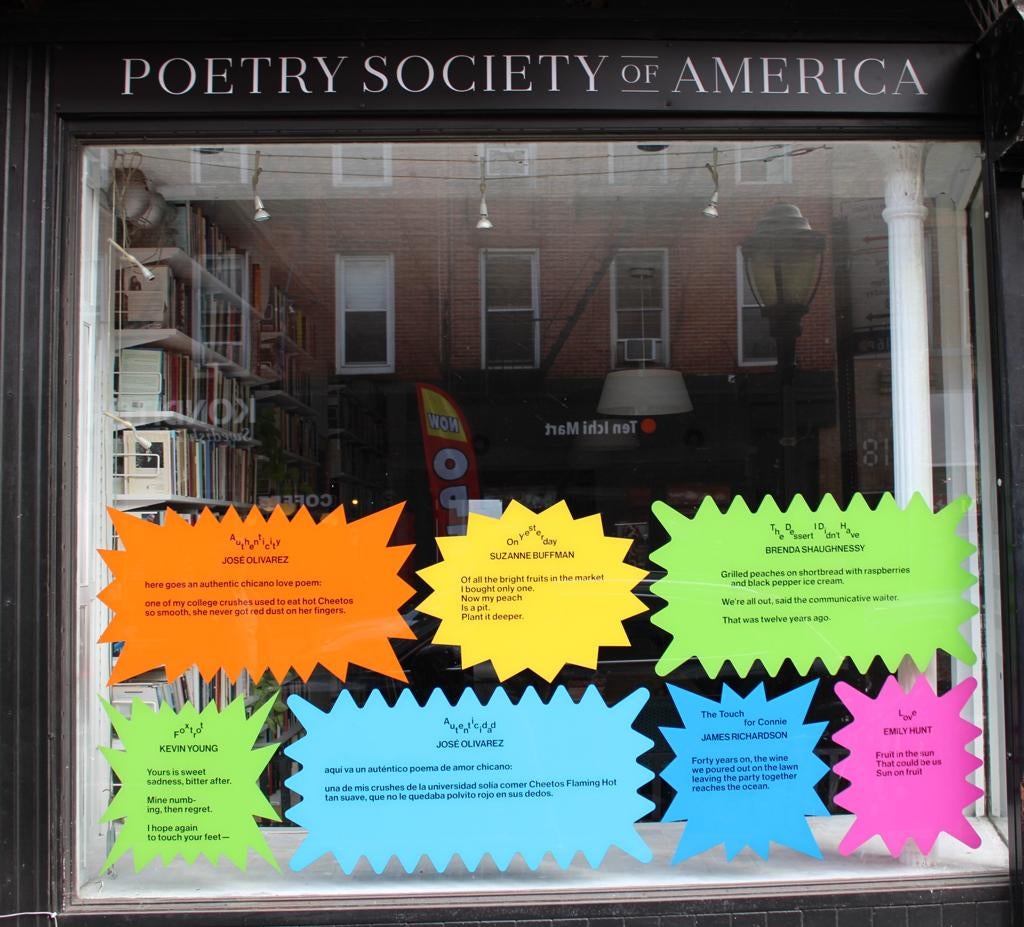 POETRY SOCIETY OF AMERICA
NOW
OP
Ten Ichi Mart
Authenticity
JOSÉ OLIVAREZ
here goes an authentic chicano love poem:
one of my college crushes used to eat hot Cheetos
so smooth, she never got red dust on her fingers.
On Yesterday
SUZANNE BUFFMAN
Of all the bright fruits in the market
I bought only one.
Now my peach
Is a pit.
Plant it deeper.
The Dessert I Didn't Have
BRENDA SHAUGHNESSY
Grilled peaches on shortbread with raspberries
and black pepper ice cream.
We're all out, said the communicative waiter.
That was twelve years ago.
Foxtrot
KEVIN YOUNG
Yours is sweet
sadness, bitter after.
Mine numb-
ing, then regret.
I hope again
to touch your feet—
Autenticidad
JOSÉ OLIVAREZ
aquí va un auténtico poema de amor chicano:
una de mis crushes de la universidad solía comer Cheetos Flaming Hot
tan suave, que no le quedaba polvito rojo en sus dedos.
The Touch
for Connie
JAMES RICHARDSON
Forty years on, the wine
we poured out on the lawn
leaving the party together
reaches the ocean.
Love
EMILY HUNT
Fruit in the sun
That could be us
Sun on fruit